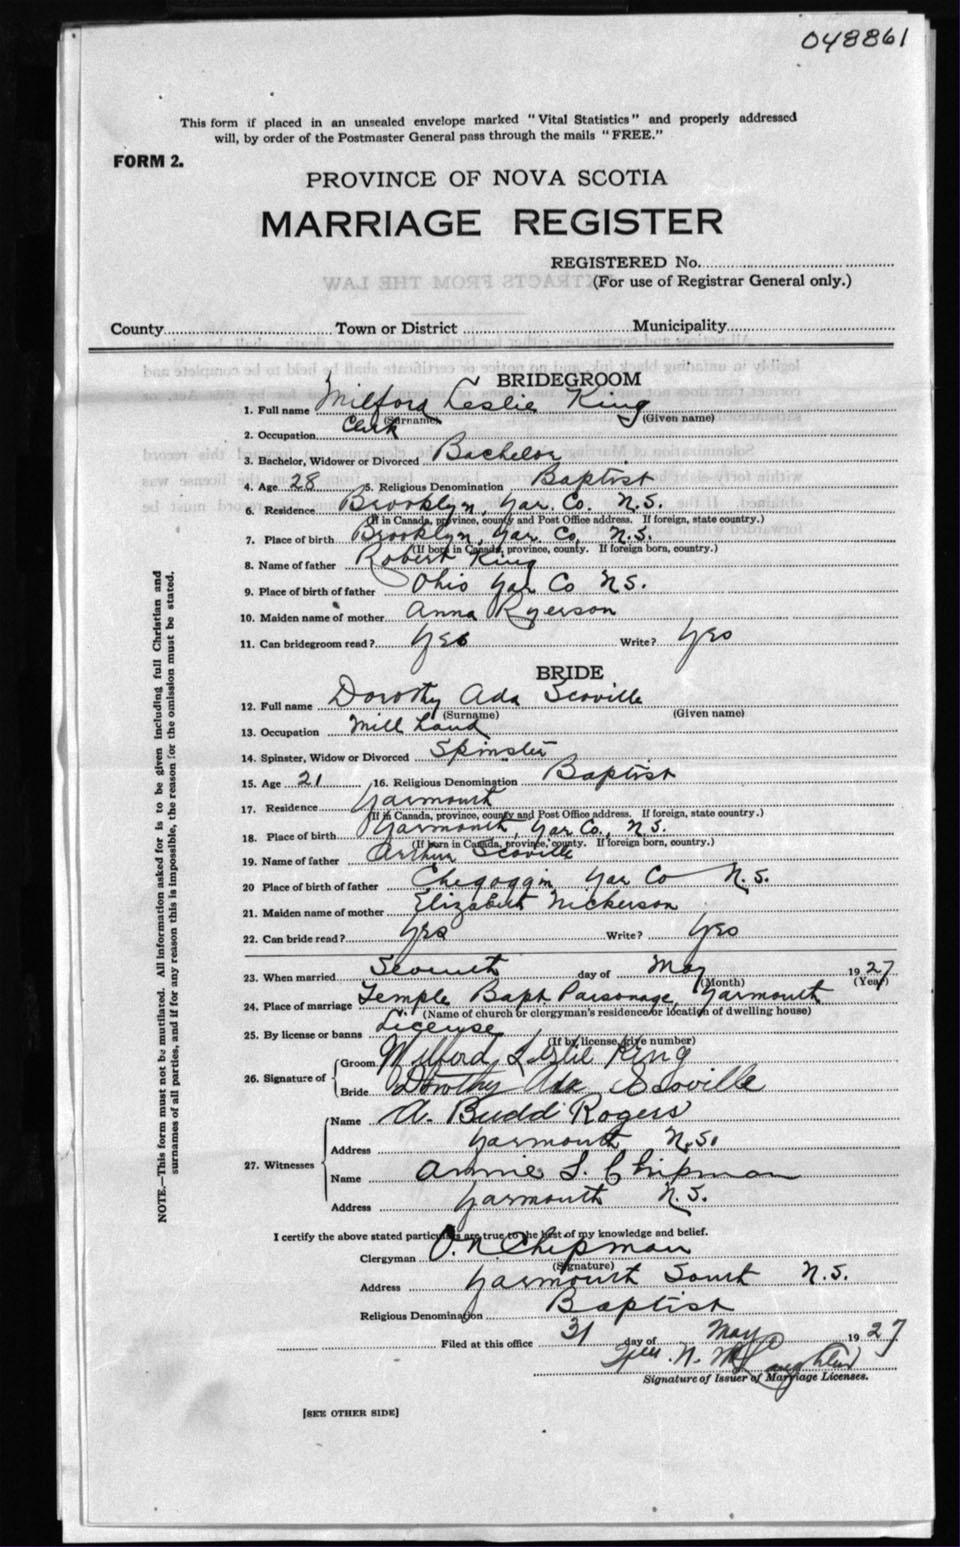 048861
This form if placed in an unsealed envelope marked "Vital Statistics" and properly addressed
will, by order of the Postmaster General pass through the mails "FREE."
FORM 2.
PROVINCE OF NOVA SCOTIA
MARRIAGE REGISTER
REGISTERED No.
(For use of Registrar General only.)
EXTRACTS FROM THE LAW
County Town or District Municipality
BRIDEGROOM
1. Full name Milford Leslie King
(Surname) (Given name)
2. Occupation Clerk
3. Bachelor, Widower or Divorced Bachelor
4. Age 28 5. Religious Denomination Baptist
6. Residence Brooklyn, Yar. Co. N.S.
(If in Canada, province, county and Post Office address. If foreign, state country.)
7. Place of birth Brooklyn, Yar. Co. N.S.
(If born in Canada, province, county. If foreign born, country.)
8. Name of father Robert King
9. Place of birth of father Ohio Yar Co N.S.
10. Maiden name of mother Anna Ryerson
11. Can bridegroom read? Yes Write? Yes
BRIDE
12. Full name Dorothy Ada Scoville
(Surname) (Given name)
13. Occupation Mill Hand
14. Spinster, Widow or Divorced Spinster
15. Age 21 16. Religious Denomination Baptist
17. Residence Yarmouth
(If in Canada, province, county and Post Office address. If foreign, state country.)
18. Place of birth Yarmouth, Yar Co., N.S.
(If born in Canada, province, county. If foreign born, country.)
19. Name of father Arthur Scoville
20 Place of birth of father Chegoggin Yar Co N.S.
21. Maiden name of mother Elizabeth Nickerson
22. Can bride read? Yes Write? Yes
23. When married Seventh day of May 1927
(Month) (Year)
24. Place of marriage Temple Bapt Parsonage, Yarmouth
(Name of church or clergyman's residence or location of dwelling house)
25. By license or banns License
(If by license, give number)
26. Signature of Groom Milford Leslie King
Bride Dorothy Ada Scoville
27. Witnesses
Name A. Budd Rogers
Address Yarmouth N.S.
Name Annie S. Chipman
Address Yarmouth N.S.
I certify the above stated particulars are true to the best of my knowledge and belief.
Clergyman O. N. Chipman
(Signature)
Address Yarmouth South N.S.
Religious Denomination Baptist
Filed at this office 31 day of May 1927
N. McLaughlin
Signature of Issuer of Marriage Licenses.
[SEE OTHER SIDE]
NOTE.—This form must not be mutilated. All information asked for is to be given including full Christian and
surnames of all parties, and if for any reason this is impossible, the reason for the omission must be stated.